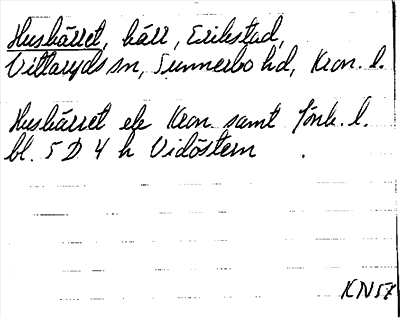 Huskärret, kärr, Erikstad,
Vittaryds sn, Sunnerbo hd, Kron. l.
Huskärret ek Kron. samt Jönk. l.
bl. 5 D 4 h Vidöstern
KN57